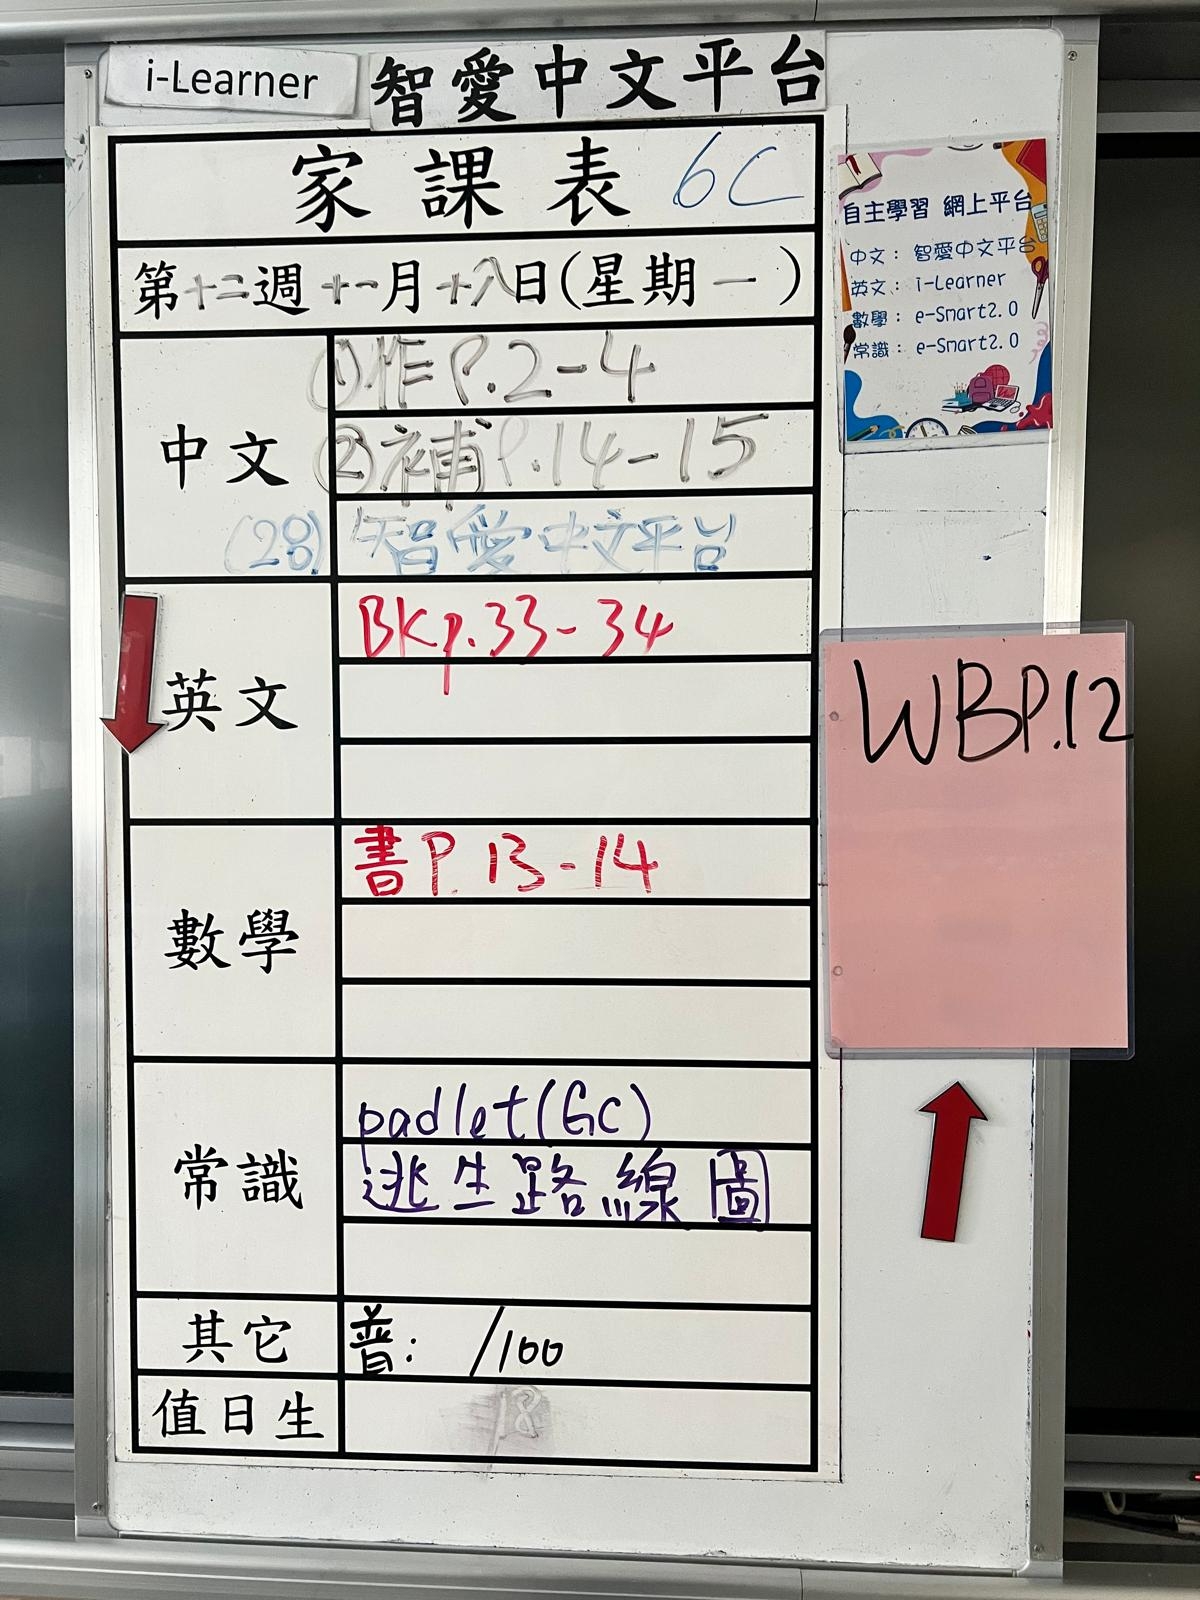 i-Learner 智愛中文平台
家課表 6C
第十二週十一月十八日(星期一)
中文
①作P.2-4
②補P.14-15
(28) 智愛中文平台
英文
BKp.33-34
數學
書P.13-14
常識
padlet(GC)
逃生路線圖
其它
普: /100
值日生
18
自主學習 網上平台
中文: 智愛中文平台
英文: i-Learner
數學: e-Smart2.0
常識: e-Smart2.0
WBP.12